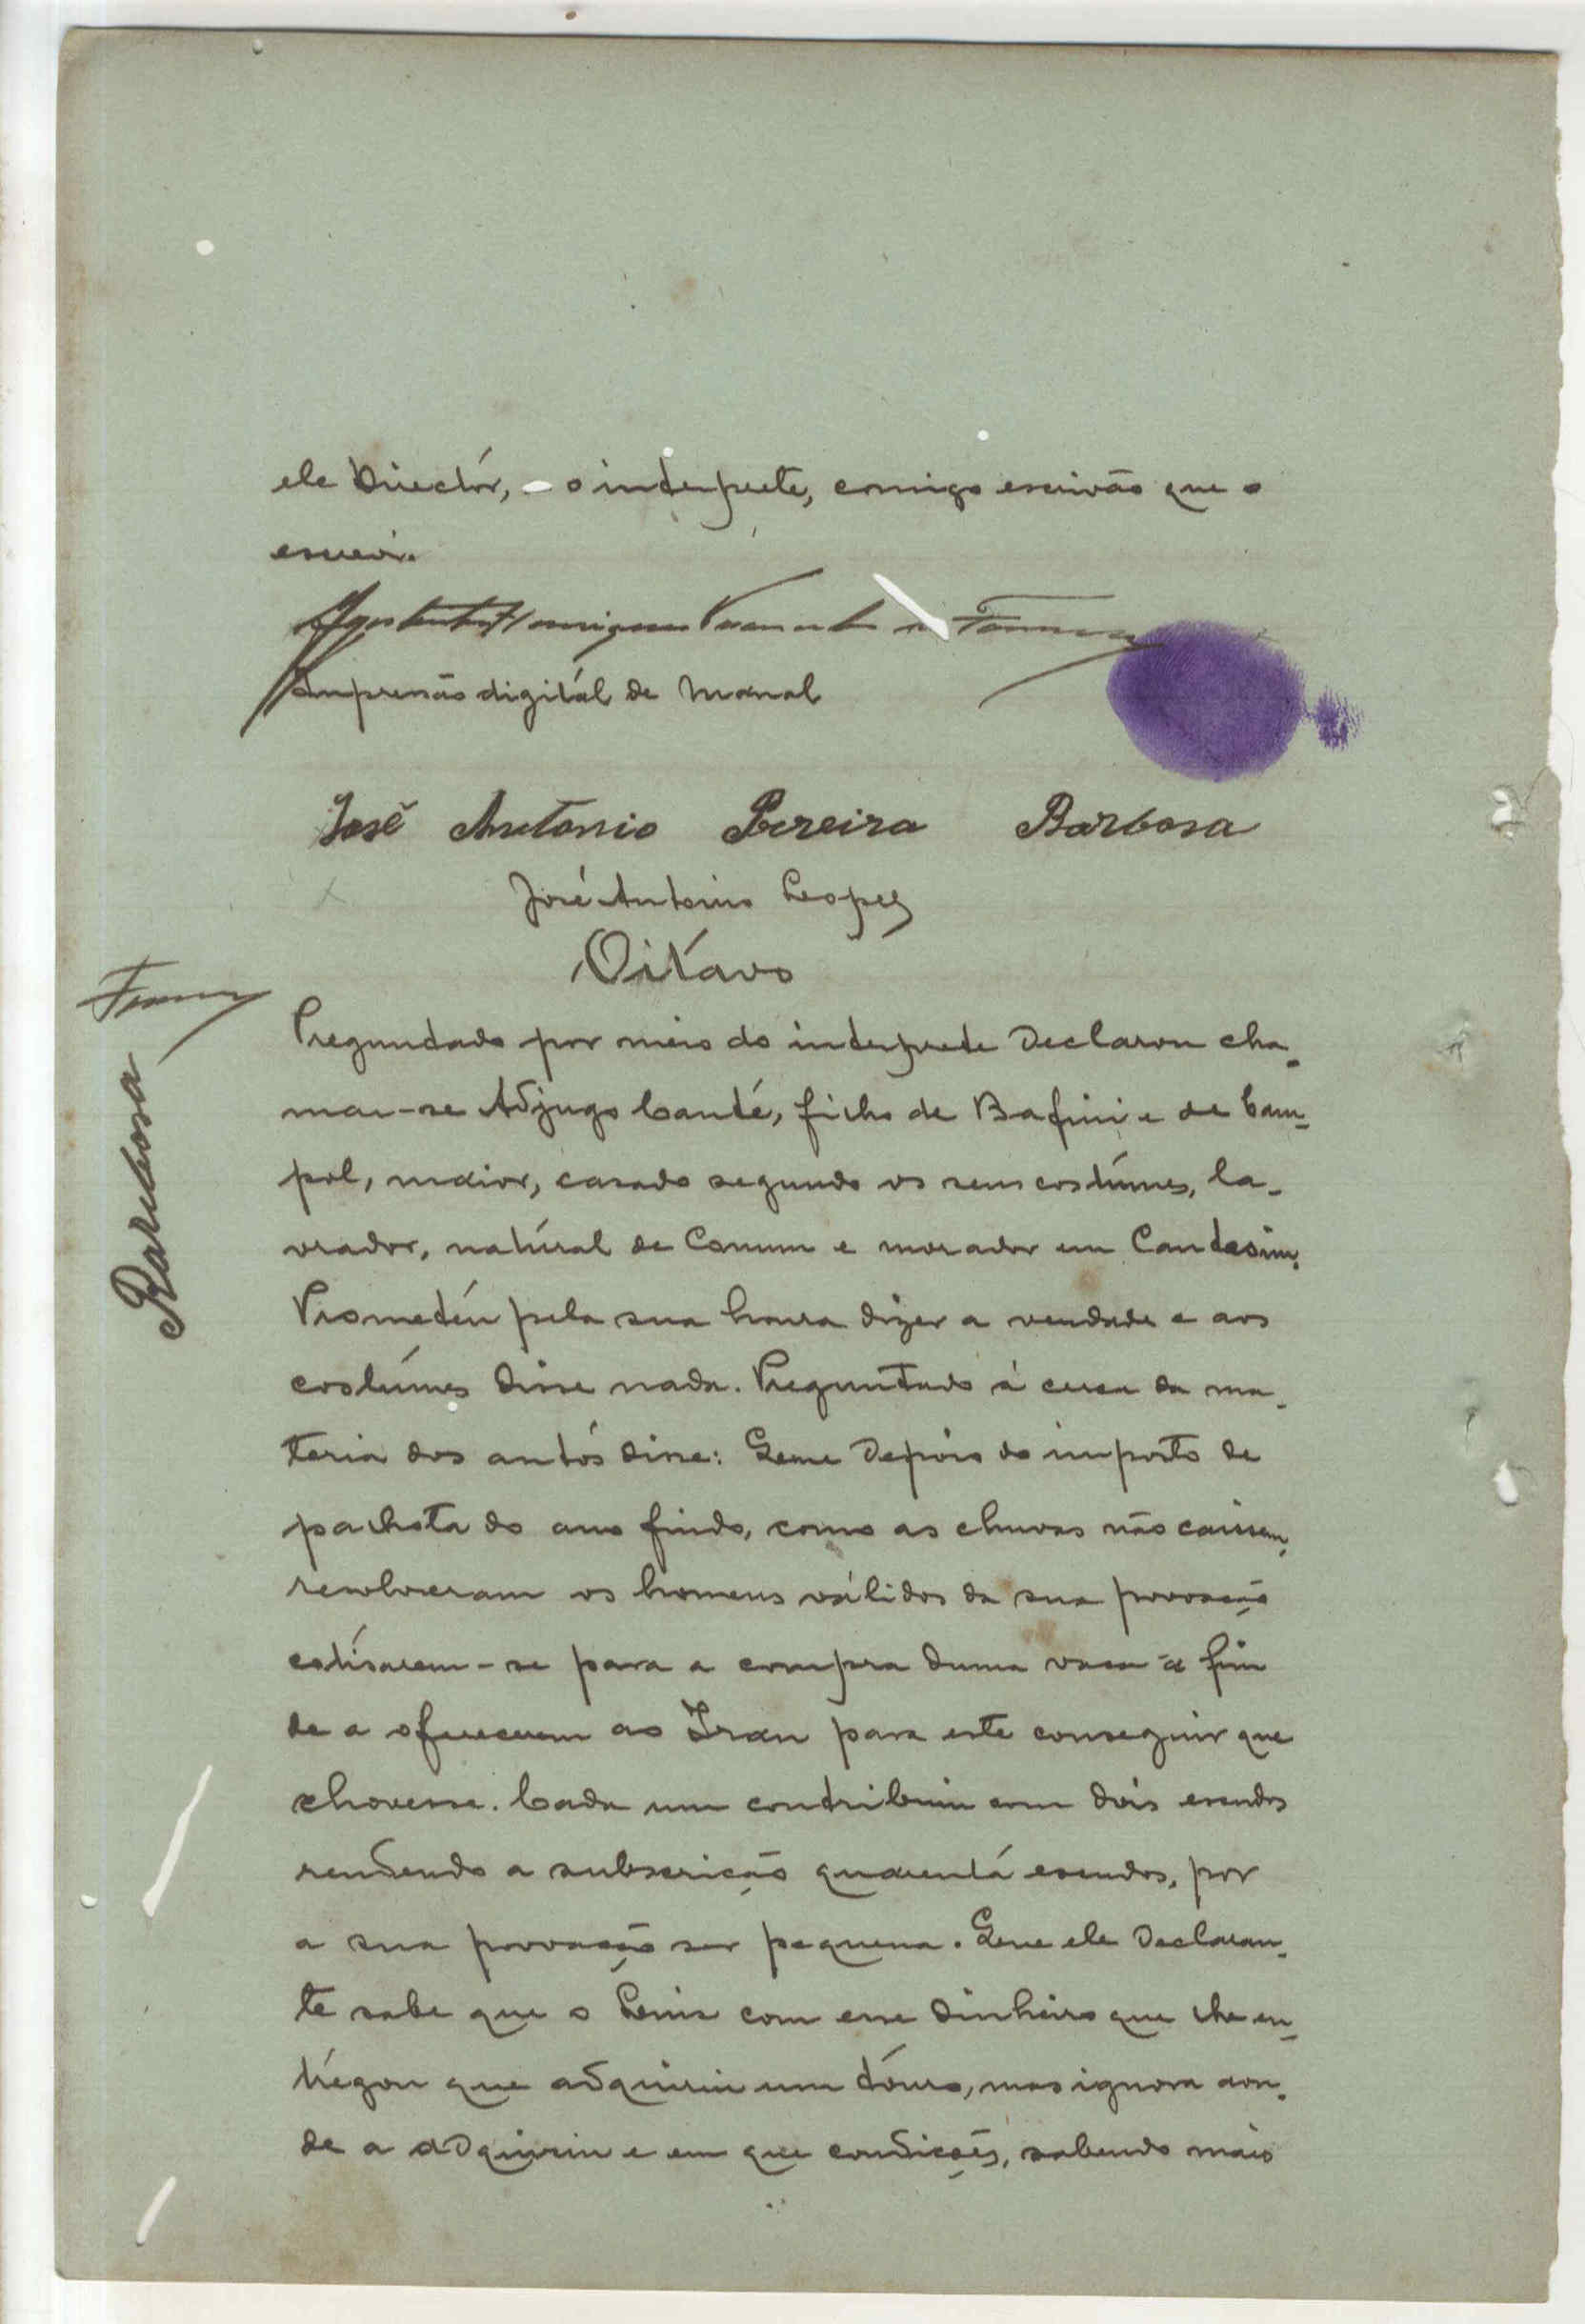 ele Diréctór, - o interprete, comigo escrivão que o
escrevi.
Impresão digitál de Manal
José António Pereira Barbosa
José Antonio Lopes
Oitavo
Barbosa
Preguntado por meio do interprete declarou cha-
mar-se Adjugo Canté, filho de Bafini e de Cam-
pol, maior, casado segundo os seus costúmes, la-
vrador, natúral de Conum e morador em Candasim.
Prometeú pela sua honra dizer a verdade e aos
costúmes disse nada. Preguntado á cerca da ma-
teria dos autós disse: Que depois do imposto de
palhota do ano findo, como as chuvas não caissem,
resolveram os homens válidos da sua povoação
cotisarem-se para a compra duma vaca a fim
de a oferecerem ao Iran para este conseguir que
chovesse. Cada um contribuiu com dois escudos
rendendo a subscrição quarentá escudos, por
a sua povoação ser pequena. Que ele declaran-
te sabe que o com esse dinheiro que lhe en-
trégou que adquiriu um tóuro, mas ignora aon-
de a adquiriu e em que condições, sabendo mais